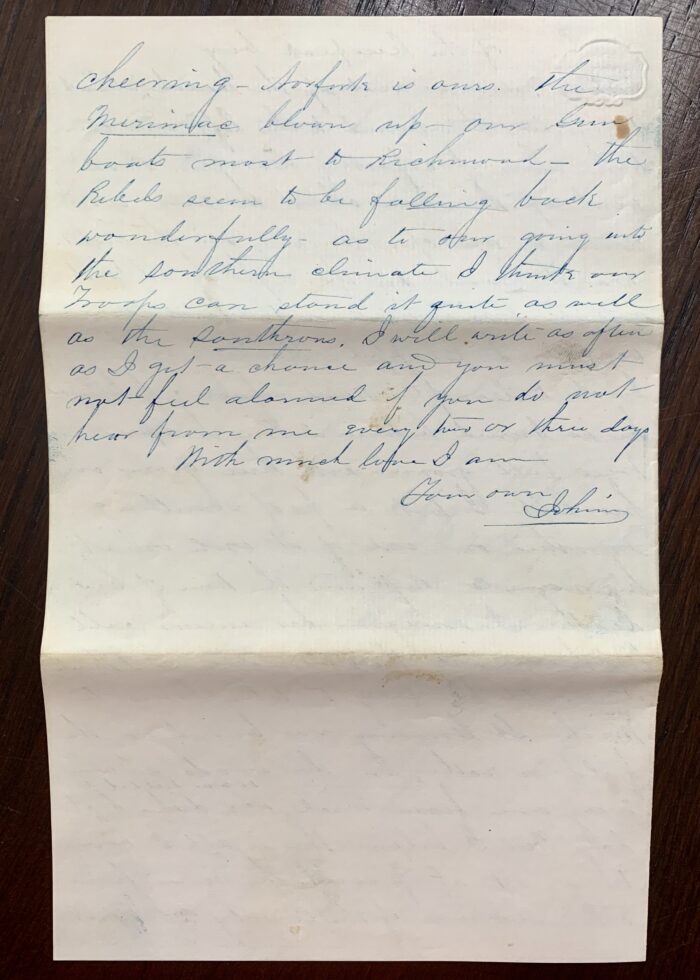 cheering - Norfork is ours. the
Merimac blown up - our Gun
boats most to Richmond - the
Rebels seem to be falling back
wonderfully - as to our going into
the southern climate I think our
Troops can stand it quite as well
as the southrons. I will write as often
as I get a chance and you must
not feel alarmed if you do not
hear from me every two or three days
With much love I am
Your own